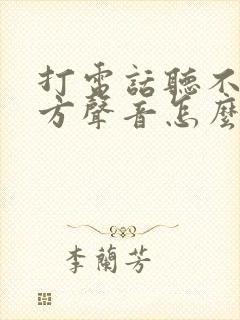 打電話聽不
方聲音怎麼
李蘭芳